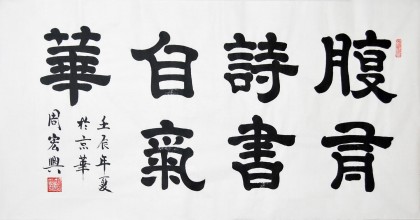 腹有
詩書
自氣
華
壬辰年夏
於京華
周宏興